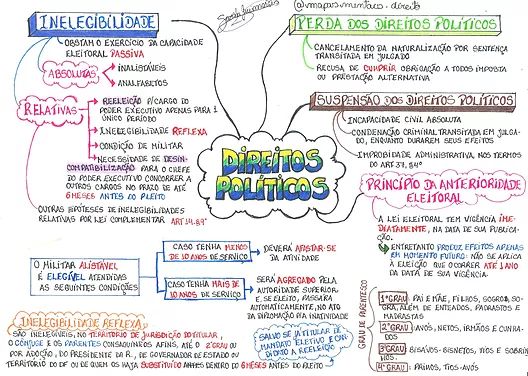 INELEGIBILIDADE
OBSTAM O EXERCÍCIO DA CAPACIDADE
ELEITORAL PASSIVA
ABSOLUTAS
INALISTÁVEIS
ANALFABETOS
RELATIVAS
REELEIÇÃO P/CARGO DO
PODER EXECUTIVO APENAS PARA 1
ÚNICO PERÍODO
INELEGIBILIDADE REFLEXA
CONDIÇÃO DE MILITAR
NECESSIDADE DE DESIN-
COMPATIBILIZAÇÃO PARA O CHEFE
DO PODER EXECUTIVO CONCORRER A
OUTROS CARGOS NO PRAZO DE ATÉ
6 MESES ANTES DO PLEITO
OUTRAS HIPÓTESES DE INELEGIBILIDADES
RELATIVAS POR LEI COMPLEMENTAR ART.14.§9°
O MILITAR ALISTÁVEL
É ELEGÍVEL ATENDIDAS
AS SEGUINTES CONDIÇÕES
CASO TENHA MENOS
DE 10 ANOS DE SERVIÇO
DEVERÁ AFASTAR-SE
DA ATIVIDADE
CASO TENHA MAIS DE
10 ANOS DE SERVIÇO
SERÁ AGREGADO PELA
AUTORIDADE SUPERIOR
E, SE ELEITO, PASSARÁ
AUTOMATICAMENTE, NO ATO
DA DIPLOMAÇÃO P/A INATIVIDADE
INELEGIBILIDADE REFLEXA
SÃO INELEGÍVEIS, NO TERRITÓRIO DE JURISDIÇÃO DO TITULAR,
O CÔNJUGE E OS PARENTES CONSAGUÍNEOS AFINS, ATÉ O 2°GRAU OU
POR ADOÇÃO, DO PRESIDENTE DA R., DE GOVERNADOR DE ESTADO OU
TERRITÓRIO DO DF OU DE QUEM OS HAJA SUBSTITUÍDO DENTRO DOS 6 MESES ANTES DO PLEITO
SALVO SE JÁ TITULAR DE
MANDATO ELETIVO E CAN-
DIDATO A REELEIÇÃO
DIREITOS
POLÍTICOS
@mapasmentais.direito
PERDA DOS DIREITOS POLÍTICOS
CANCELAMENTO DA NATURALIZAÇÃO POR SENTENÇA
TRANSITADA EM JULGADO
RECUSA DE CUMPRIR OBRIGAÇÃO A TODOS IMPOSTA
OU PRESTAÇÃO ALTERNATIVA
SUSPENSÃO DOS DIREITOS POLÍTICOS
INCAPACIDADE CIVIL ABSOLUTA
CONDENAÇÃO CRIMINAL TRANSITADA EM JULGA-
DO, ENQUANTO DURAREM SEUS EFEITOS
IMPROBIDADE ADMINISTRATIVA, NOS TERMOS
DO ART.37, §4°
PRINCÍPIO DA ANTERIORIDADE
ELEITORAL
A LEI ELEITORAL TEM VIGÊNCIA IME-
DIATAMENTE, NA DATA DE SUA PUBLICA-
ÇÃO.
ENTRETANTO PRODUZ EFEITOS APENAS
EM MOMENTO FUTURO: NÃO SE APLICA
À ELEIÇÃO QUE OCORRER ATÉ 1 ANO
DA DATA DE SUA VIGÊNCIA.
GRAU DE PARENTESCO
1°GRAU PAI E MÃE, FILHOS, SOGROS, SO-
GRA, ALÉM DE ENTEADOS, PADRASTOS E
MADRASTAS
2°GRAU AVÓS, NETOS, IRMÃOS E CUNHA-
DOS
3°GRAU BISAVÓS, BISNETOS, TIOS E SOBRI-
NHOS
4°GRAU PRIMOS, TIOS-AVÓS